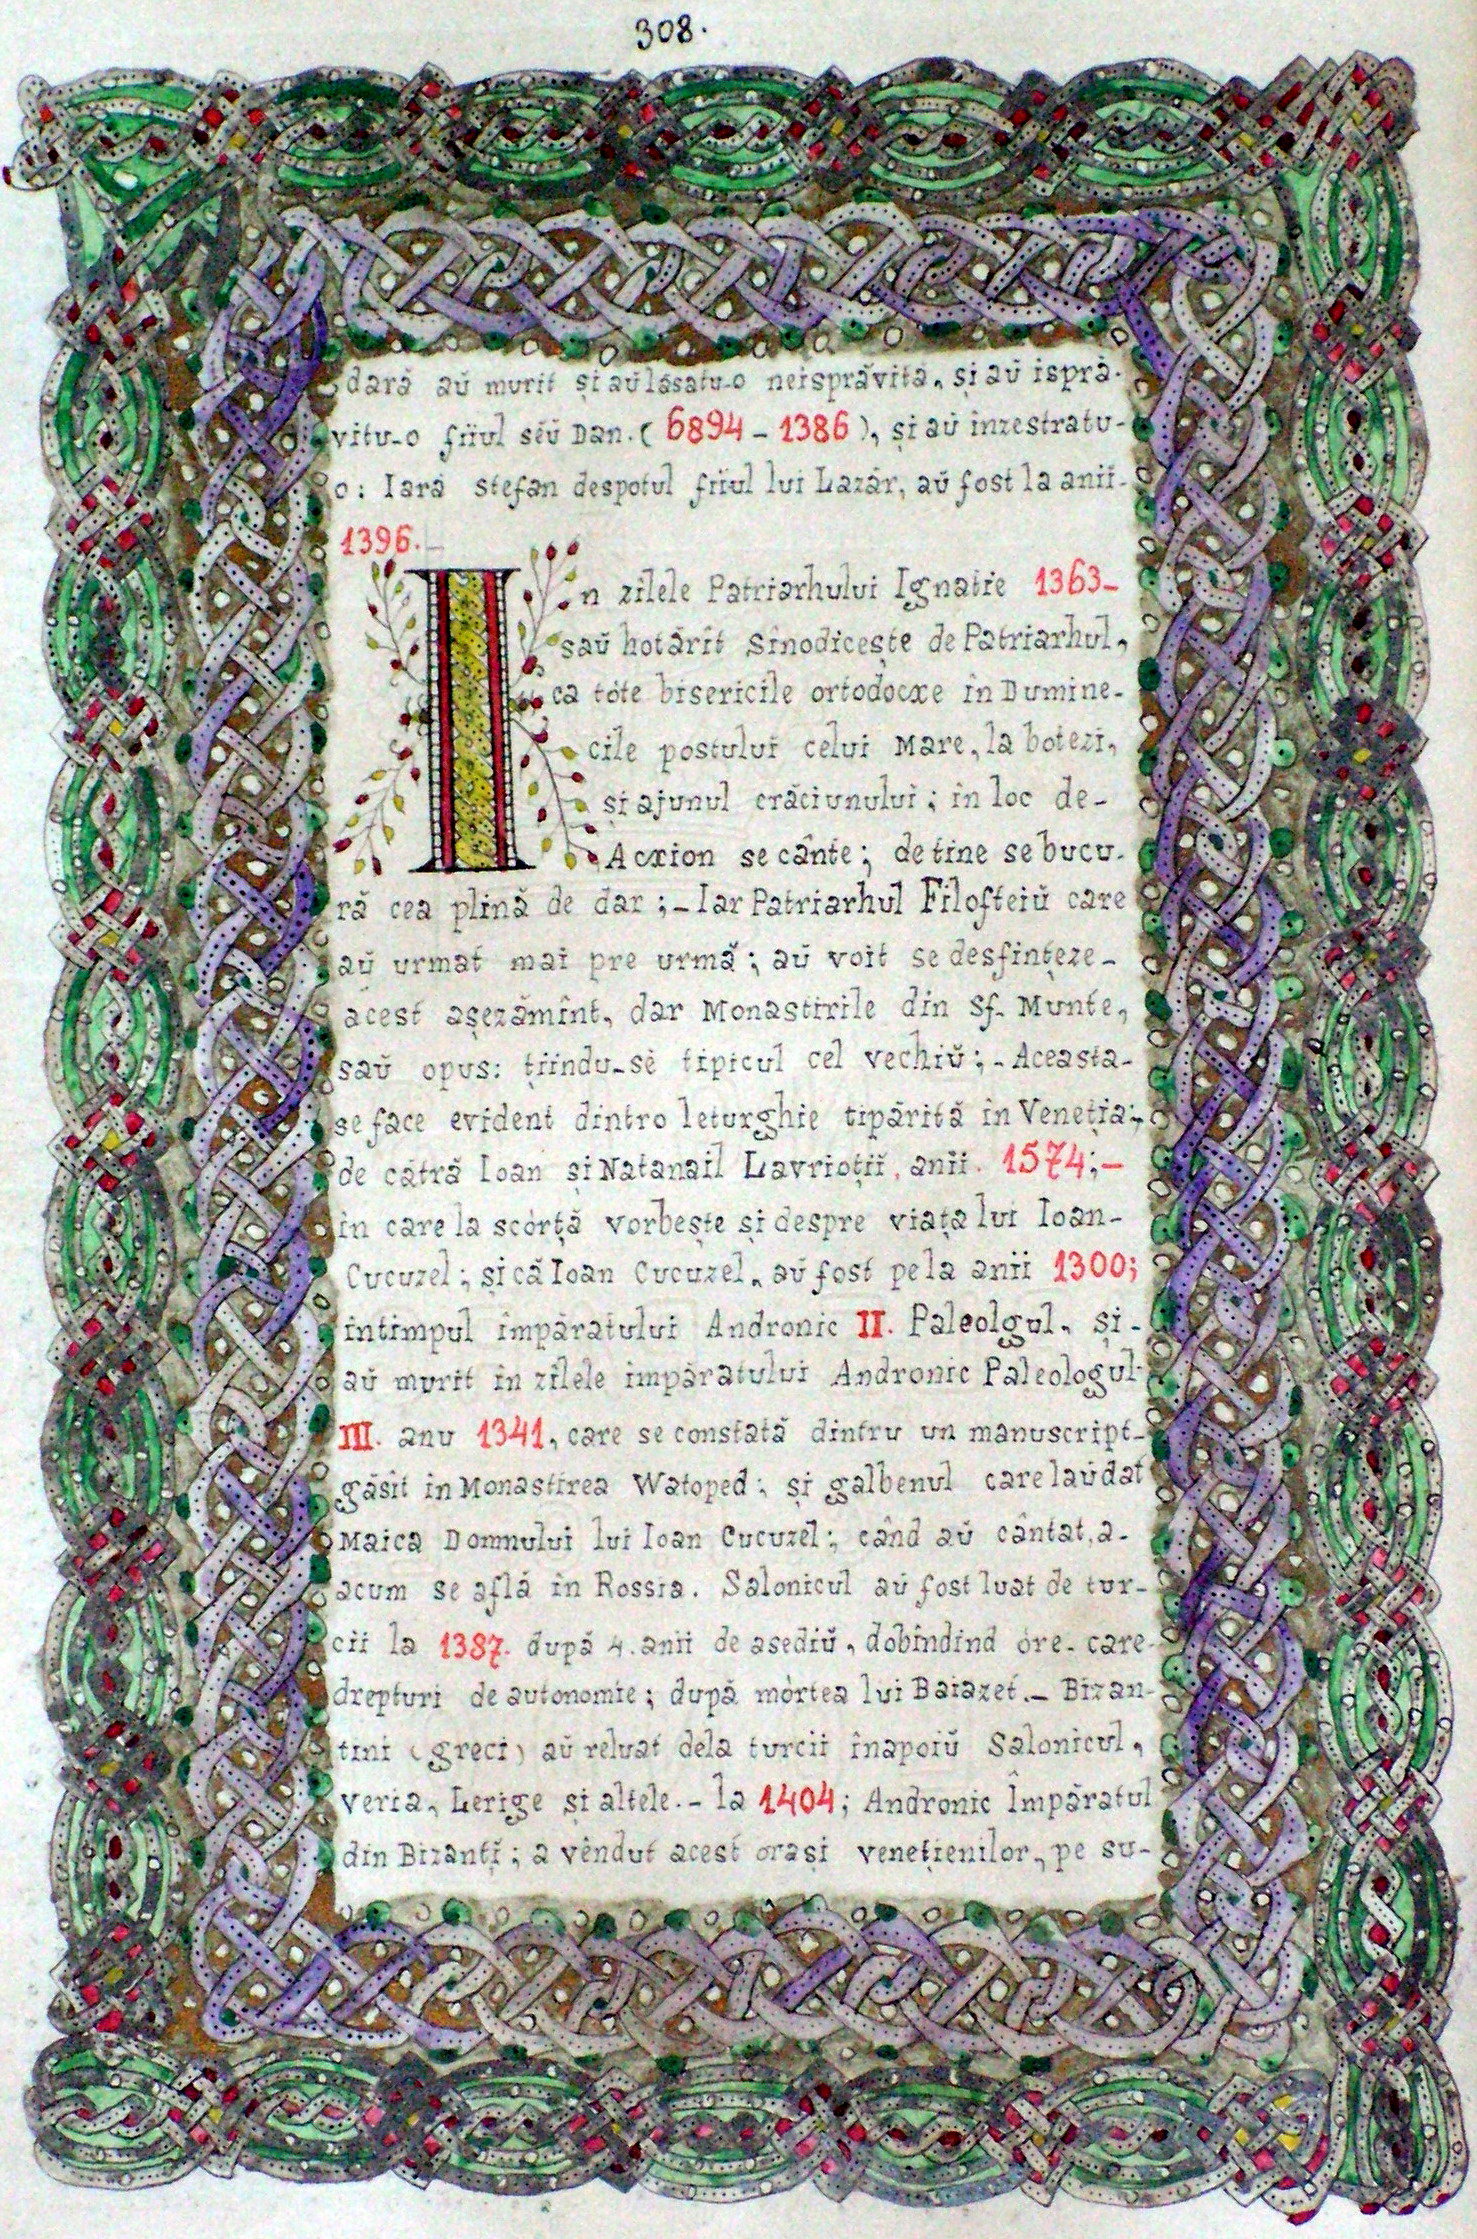 308.
dară aŭ murit și aŭ lăsatu-o neisprăvită, și aŭ ispră-
vitu-o fiiul sĕŭ Dan. ( 6894 - 1386 ), și aŭ inzestratu-
o: Iară stefan despotul fiiul lui Lazăr, aŭ fost la anii-
1396.-
In zilele Patriarhului Ignatie 1363-
saŭ hotărît sinodicește de Patriarhul,
ca tóte bisericile ortodocxe în Dumine-
cile postului celui Mare, la botezi,
și ajunul crăciunului; in loc de-
Acxion se cânte; de tine se bucu-
ră cea plină de dar ;- Iar Patriarhul Filofteiŭ care
aŭ urmat mai pre urmă; aŭ voit se desfințeze-
acest așezămînt, dar Monastirile din Sf. Munte,
saŭ opus: țiindu-sĕ tipicul cel vechiŭ; - Aceasta-
se face evident dintro leturghie tipărită în Veneția;
de cătră Ioan și Natanail Lavrioții, anii. 1574;-
in care la scórță vorbește și despre viața lui Ioan-
Cucuzel; și că Ioan Cucuzel, aŭ fost pela anii 1300;
intimpul împăratului Andronic II. Paleolgul, și-
aŭ murit in zilele impăratului Andronic Paleologul
III. anu 1341, care se constată dintru un manuscript-
găsit in Monastirea Watoped; și galbenul care laŭdat
Maica Domnului lui Ioan Cucuzel; când aŭ cântat, a-
acum se află în Rossia. Salonicul aŭ fost luat de tur-
cii la 1387. după 4. anii de asediŭ, dobîndind óre-care-
drepturi de autonomie; după mórtea lui Baiazet.- Bizan-
tini (greci) aŭ reluat dela turcii înapoiŭ Salonicul,
veria, Lerige și altele.- la 1404; Andronic Împăratul
din Bizanți; a vêndut acest orași venețienilor, pe su-